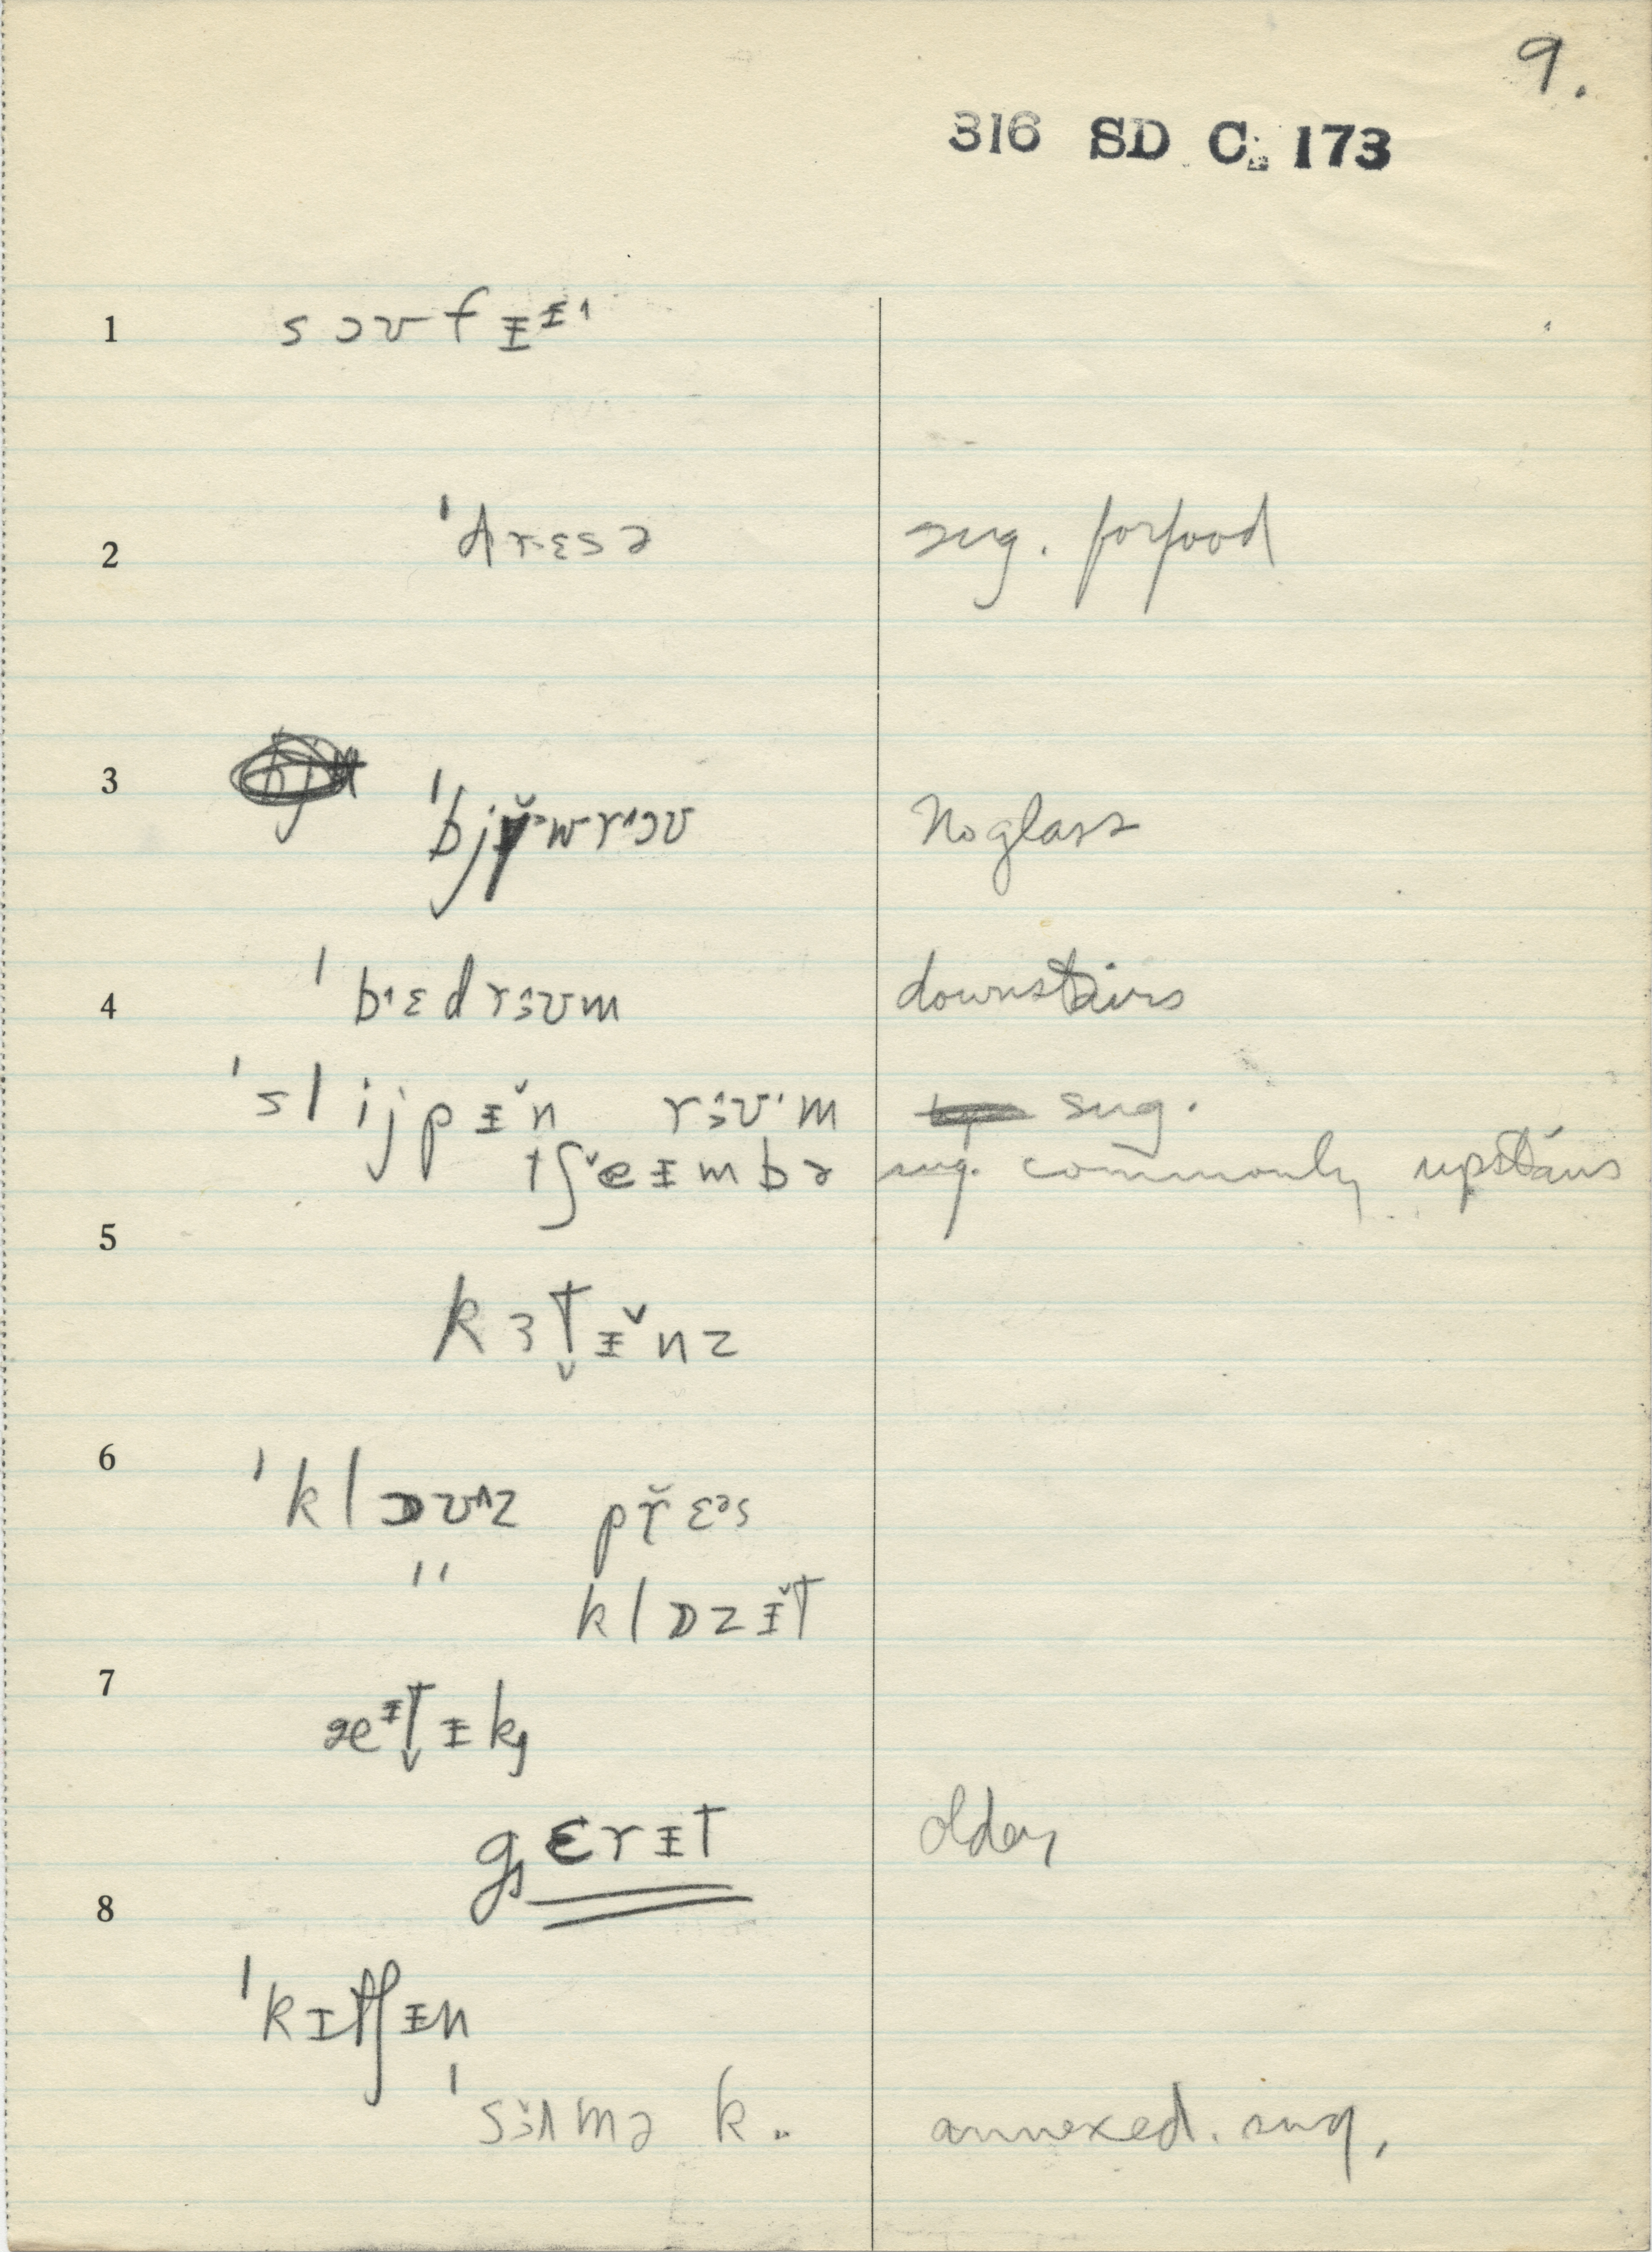 9.
316 SD C. 173
1 sɔʊfᵻᵻ˄
2 ˈdrɛsə sug. for food
3 ˈbjʉ̌ᵊwr˄ɔʊ No glass
4 ˈb˄ɛdrɜʊm downstairs
ˈslijpᵻ̌n rɜʊˈm sug.
tʃˇeᵻmbə sug. commonly upstairs
5 kɜt̬ᵻ̌nz
6 ˈklɒʊ˄z př ɛᵊs
" klɒzᵻ̌t
7 æᵻt̬ᵻk
gɛrᵻt older
8 ˈkɪtʃᵻn
ˈsɜ̌ʌmə k.. annexed. sug.